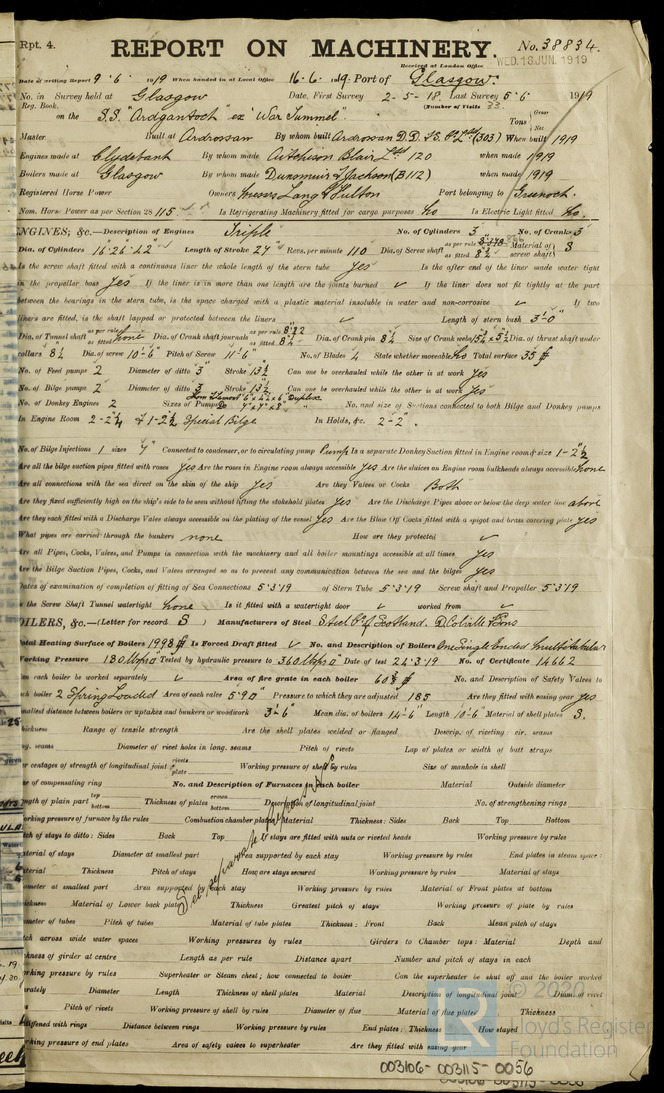 Rpt. 4.
REPORT ON MACHINERY.
No. 38834.
Received at London Office WED. 18 JUN. 1919
Date of writing Report 9 . 6 . 1919 When handed in at Local Office 16 . 6 . 19. Port of Glasgow.
No. in Survey held at Glasgow Date, First Survey 2-5-18. Last Survey 5.6 1919
Reg. Book. (Number of Visits 33.
on the S.S. "Ardgantock" ex "War Tummel". Tons Gross Net
Master Built at Ardrossan By whom built Ardrossan D.D. & S. Co Ltd (303) When built 1919
Engines made at Clydebank By whom made Aitchison Blair Ltd 120 when made 1919
Boilers made at Glasgow By whom made Dunsmuir & Jackson (B112) when made 1919
Registered Horse Power Owners Messrs Lang & Fulton Port belonging to Greenock.
Nom. Horse Power as per Section 28 115 Is Refrigerating Machinery fitted for cargo purposes No Is Electric Light fitted No.
ENGINES, &c.—Description of Engines Triple No. of Cylinders 3 No. of Cranks 3
Dia. of Cylinders 16" 26" 42" Length of Stroke 27" Revs. per minute 110 Dia. of Screw shaft as per rule as fitted 8 3/4 Material of screw shaft S
Is the screw shaft fitted with a continuous liner the whole length of the stern tube Yes Is the after end of the liner made water tight
in the propeller boss Yes If the liner is in more than one length are the joints burned If the liner does not fit tightly at the part
between the bearings in the stern tube, is the space charged with a plastic material insoluble in water and non-corrosive If two
liners are fitted, is the shaft lapped or protected between the liners Length of stern bush 3'-0"
Dia. of Tunnel shaft as per rule as fitted none Dia. of Crank shaft journals as per rule as fitted 8 1/4 Dia. of Crank pin 8 1/4 Size of Crank webs Dia. of thrust shaft under
collars 8 1/4 Dia. of screw 10'-6" Pitch of Screw 11'-6" No. of Blades 4 State whether moveable No Total surface 35
No. of Feed pumps 2 Diameter of ditto 3 Stroke 13 1/2 Can one be overhauled while the other is at work Yes
No. of Bilge pumps 2 Diameter of ditto 3 Stroke 13 1/2 Can one be overhauled while the other is at work Yes
No. of Donkey Engines 2 Sizes of Pumps Duplex No. and size of Suctions connected to both Bilge and Donkey pumps
In Engine Room 2-2 1/4 & 1-2 1/2 Special Bilge In Holds, &c. 2-2".
No. of Bilge Injections 1 sizes 4" Connected to condenser, or to circulating pump Pump Is a separate Donkey Suction fitted in Engine room & size 1-2 1/2
Are all the bilge suction pipes fitted with roses Yes Are the roses in Engine room always accessible Yes Are the sluices on Engine room bulkheads always accessible none
Are all connections with the sea direct on the skin of the ship Yes Are they Valves or Cocks Both
Are they fixed sufficiently high on the ship's side to be seen without lifting the stokehold plates Yes Are the Discharge Pipes above or below the deep water line above
Are they each fitted with a Discharge Valve always accessible on the plating of the vessel Yes Are the Blow Off Cocks fitted with a spigot and brass covering plate Yes
What pipes are carried through the bunkers none How are they protected
Are all Pipes, Cocks, Valves, and Pumps in connection with the machinery and all boiler mountings accessible at all times Yes
Are the Bilge Suction Pipes, Cocks, and Valves arranged so as to prevent any communication between the sea and the bilges Yes
Dates of examination of completion of fitting of Sea Connections 5.3.19 of Stern Tube 5.3.19 Screw shaft and Propeller 5.3.19
Is the Screw Shaft Tunnel watertight none Is it fitted with a watertight door worked from
OILERS, &c.—(Letter for record S) Manufacturers of Steel Steel Co of Scotland. D. Colville & Sons
Total Heating Surface of Boilers 1998 Is Forced Draft fitted No. and Description of Boilers One Single Ended Multitubular
Working Pressure 180 lbs Tested by hydraulic pressure to 360 lbs Date of test 24.3.19 No. of Certificate 14662
an each boiler be worked separately Area of fire grate in each boiler 60 No. and Description of Safety Valves to
each boiler 2 Spring Loaded Area of each valve 5.90" Pressure to which they are adjusted 185 Are they fitted with easing gear Yes
smallest distance between boilers or uptakes and bunkers or woodwork 3'-6" Mean dia. of boilers 14'-6" Length 10'-6" Material of shell plates S.
hickness Range of tensile strength Are the shell plates welded or flanged Descrip. of riveting: cir. seams
ng. seams Diameter of rivet holes in long. seams Pitch of rivets Lap of plates or width of butt straps
er centages of strength of longitudinal joint rivets plate Working pressure of shell by rules Size of manhole in shell
ze of compensating ring No. and Description of Furnaces in each boiler Material Outside diameter
ength of plain part top bottom Thickness of plates crown bottom Description of longitudinal joint No. of strengthening rings
orking pressure of furnace by the rules Combustion chamber plates: Material Thickness: Sides Back Top Bottom
itch of stays to ditto: Sides Back Top If stays are fitted with nuts or riveted heads Working pressure by rules
aterial of stays Diameter at smallest part Area supported by each stay Working pressure by rules End plates in steam space:
aterial Thickness Pitch of stays How are stays secured Working pressure by rules Material of stays
iameter at smallest part Area supported by each stay Working pressure by rules Material of Front plates at bottom
hickness Material of Lower back plate Thickness Greatest pitch of stays Working pressure of plate by rules
ameter of tubes Pitch of tubes Material of tube plates Thickness: Front Back Mean pitch of stays
tch across wide water spaces Working pressures by rules Girders to Chamber tops: Material Depth and
ickness of girder at centre Length as per rule Distance apart Number and pitch of stays in each
orking pressure by rules Superheater or Steam chest; how connected to boiler Can the superheater be shut off and the boiler worked
arately Diameter Length Thickness of shell plates Material Description of longitudinal joint Diam. of rivet
Pitch of rivets Working pressure of shell by rules Diameter of flue Material of flue plates Thickness
stiffened with rings Distance between rings Working pressure by rules End plates: Thickness How stayed
orking pressure of end plates Area of safety valves to superheater Are they fitted with easing gear
See separate report
© 2020
Lloyd's Register
Foundation
003106-003115-0056